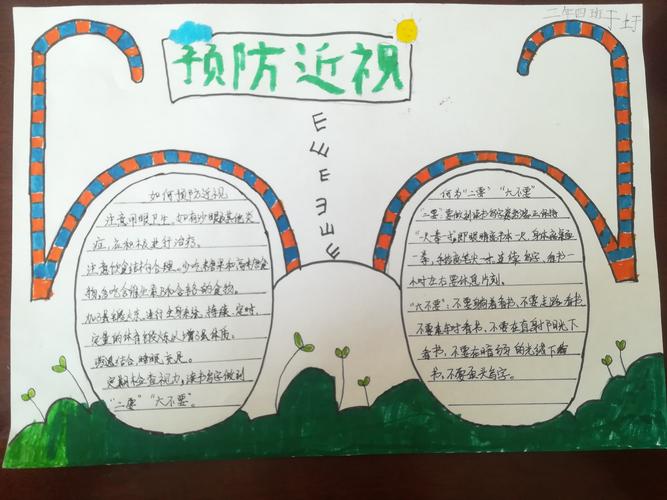 二年四班于圩
预防近视
E E E E E E E
如何预防近视
注意用眼卫生。如有沙眼或其他炎
症,应积极进行治疗。
注意饮食结构合理。少吃糖果和高
物,多吃含维生素
加强眼 ,进行 、持续、定时、
定量的体育锻炼以增强体质。
劳逸结合,睡眠充足。
定期检查视力,读书写字做到
“二要”“六不要”。
何为“二要”“六不要”
“二要”:要做到读书写字 端正保持
“一尺一拳一寸”即眼睛离书本一尺,身体离桌沿一
拳,手指离笔尖一寸。连续写字、看书一
小时左右要休息片刻。
“六不要”:不要躺着看书、不要走路看书、
不要乘车时看书、不要在直射阳光下
看书、不要在暗弱的光线下看
书、不要歪头写字。